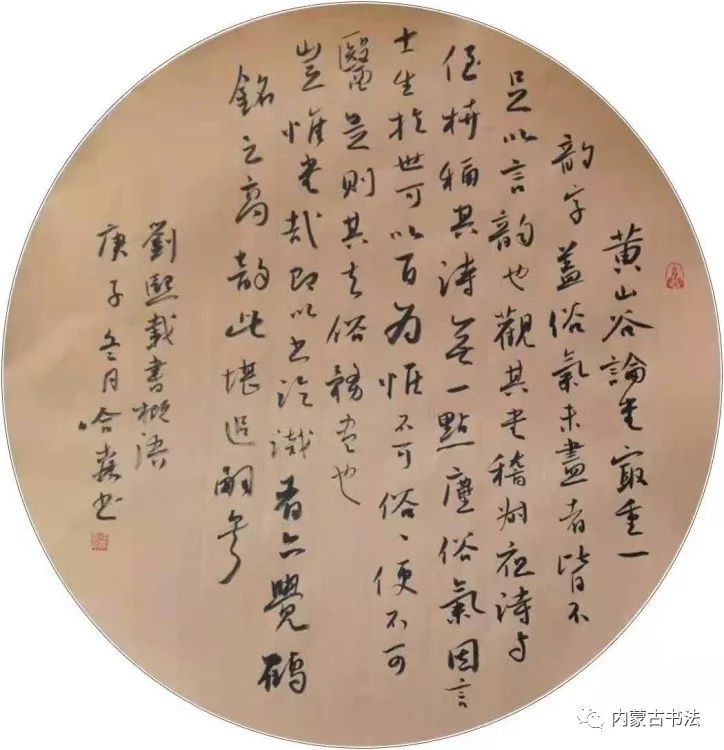 黄山谷論书冣重一
韵字蓋俗氣未盡者皆不
足以言韵也觀其书稽叔夜詩与
侄榎稱其詩無一點塵俗氣因言
士生於世可以百为惟不可俗、便不可
醫是則其去俗務尽也
豈惟书哉即以书論識者亦覺鶴
銘之高韵此堪追嗣矣
劉熙載書概語
庚子冬月哈森书
内蒙古书法